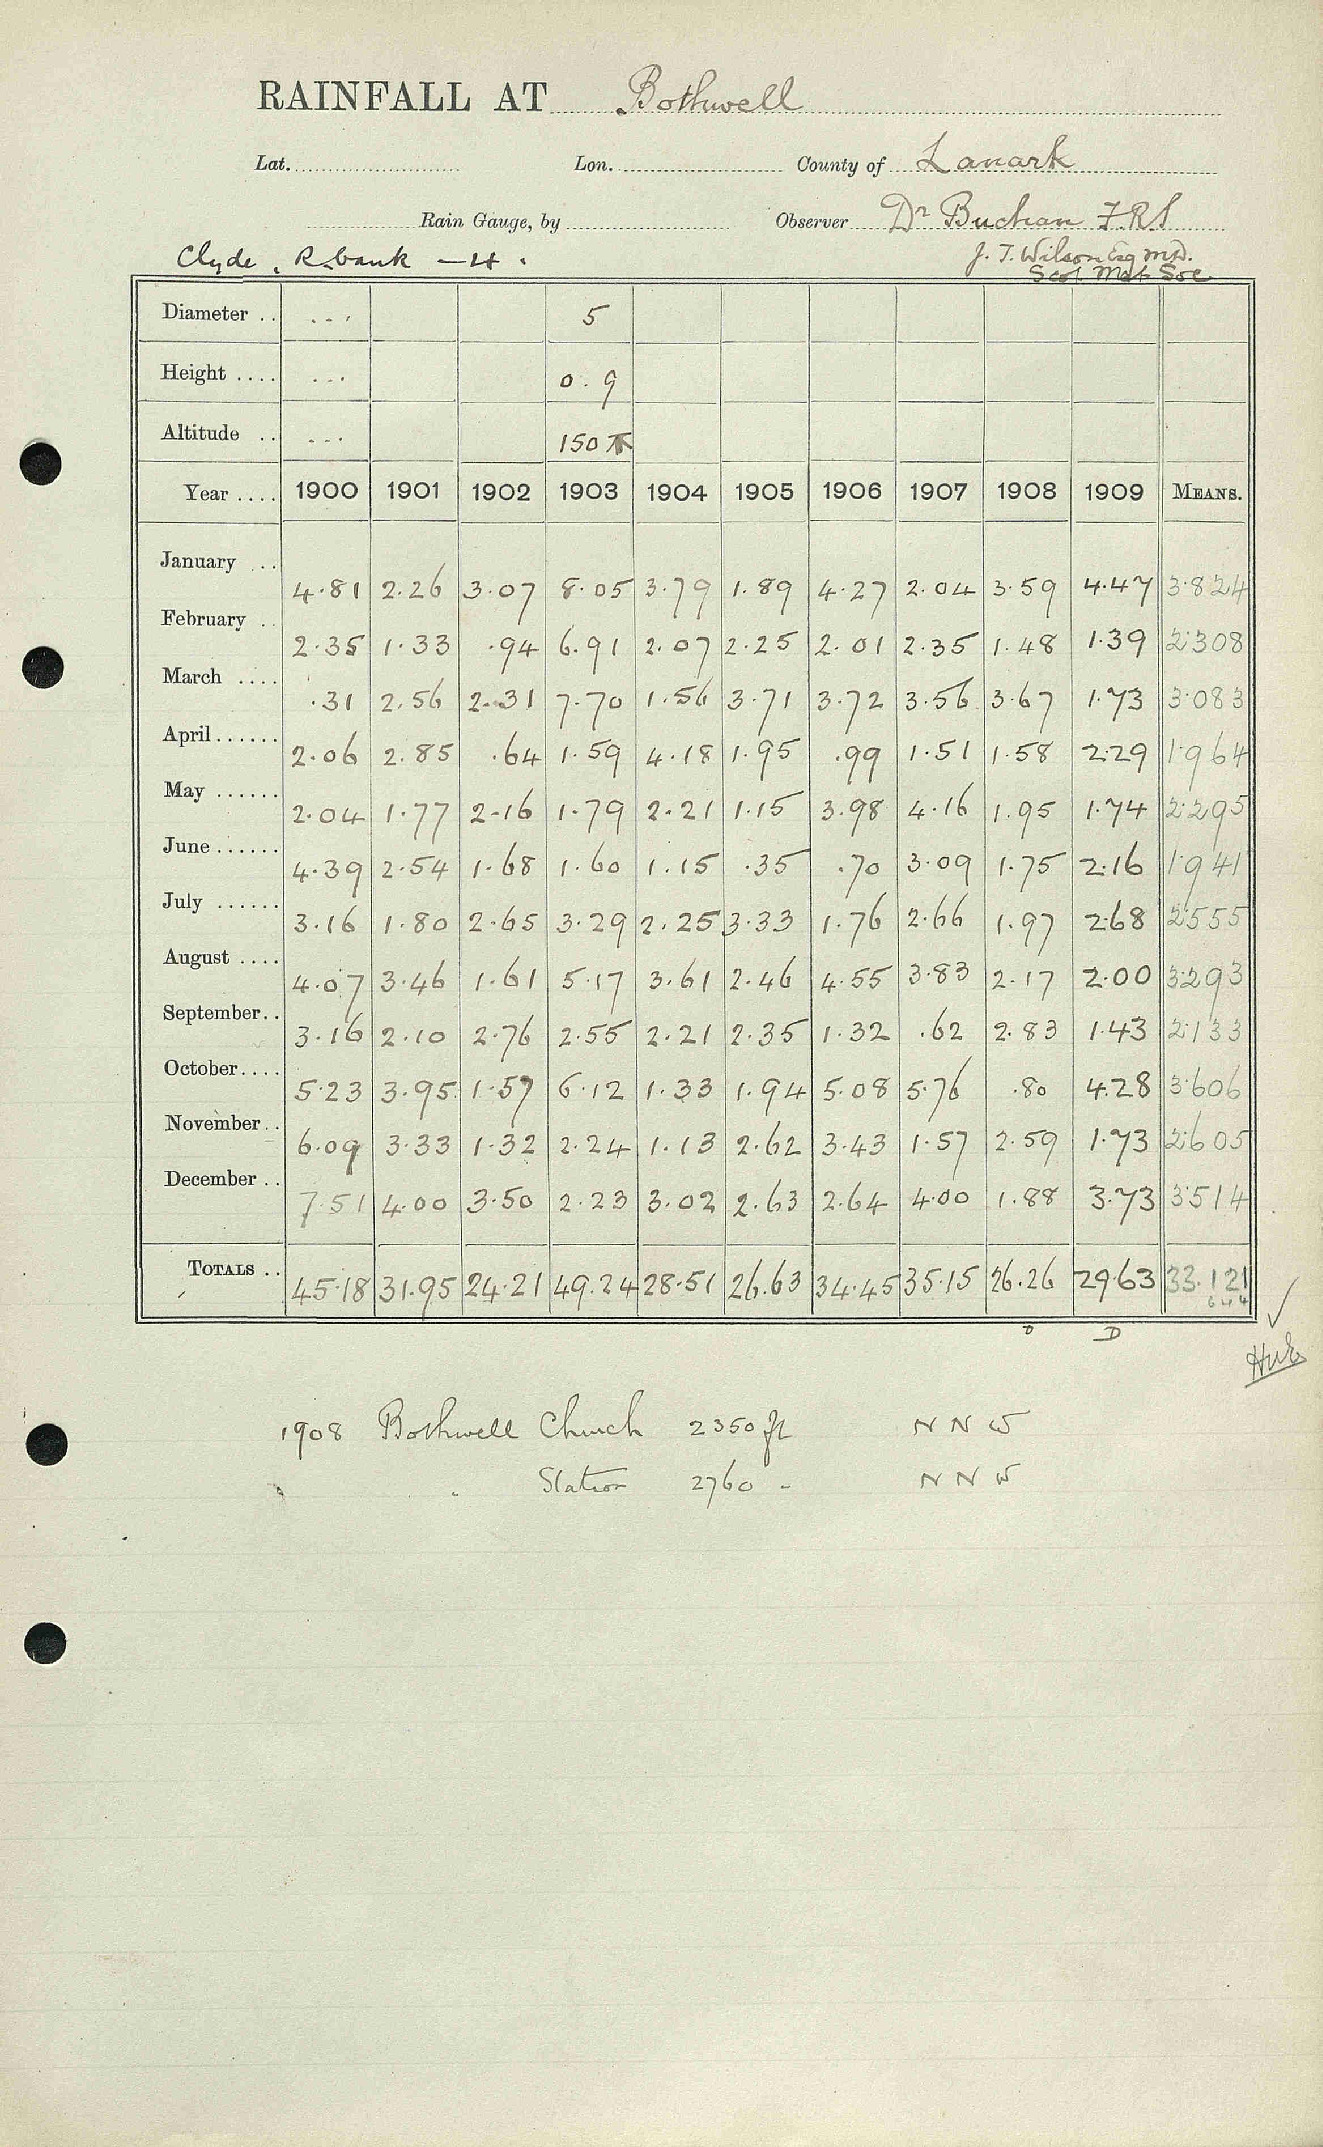 RAINFALL AT Bothwell
Lat. Lon. County of Lanark
Rain Gauge, by Observer Dr Buchan F.R.S
Clyde, R. bank — 4. J. T. Wilson Esq M.D.
Scot Met Soc
Diameter .. ... 5
Height .... ... 0.9
Altitude .. ... 150
Year .... 1900 1901 1902 1903 1904 1905 1906 1907 1908 1909 MEANS.
January ... 4.81 2.26 3.07 8.05 3.79 1.89 4.27 2.04 3.59 4.47 3.824
February .. 2.35 1.33 .94 6.91 2.07 2.25 2.01 2.35 1.48 1.39 2.308
March .... .31 2.56 2.31 7.70 1.56 3.71 3.72 3.56 3.67 1.73 3.083
April ...... 2.06 2.85 .64 1.59 4.18 1.95 .99 1.51 1.58 2.29 1.964
May ...... 2.04 1.77 2.16 1.79 2.21 1.15 3.98 4.16 1.95 1.74 2.295
June ...... 4.39 2.54 1.68 1.60 1.15 .35 .70 3.09 1.75 2.16 1.941
July ...... 3.16 1.80 2.65 3.29 2.25 3.33 1.76 2.66 1.97 2.68 2.555
August .... 4.07 3.46 1.61 5.17 3.61 2.46 4.55 3.83 2.17 2.00 3.293
September.. 3.16 2.10 2.76 2.55 2.21 2.35 1.32 .62 2.83 1.43 2.133
October.... 5.23 3.95 1.57 6.12 1.33 1.94 5.08 5.76 .80 4.28 3.606
November.. 6.09 3.33 1.32 2.24 1.13 2.62 3.43 1.57 2.59 1.73 2.605
December .. 7.51 4.00 3.50 2.23 3.02 2.63 2.64 4.00 1.88 3.73 3.514
TOTALS .. 45.18 31.95 24.21 49.24 28.51 26.63 34.45 35.15 26.26 29.63 33.121
D
1908 Bothwell Church 2350 ft N N W
" Station 2760 " N N W